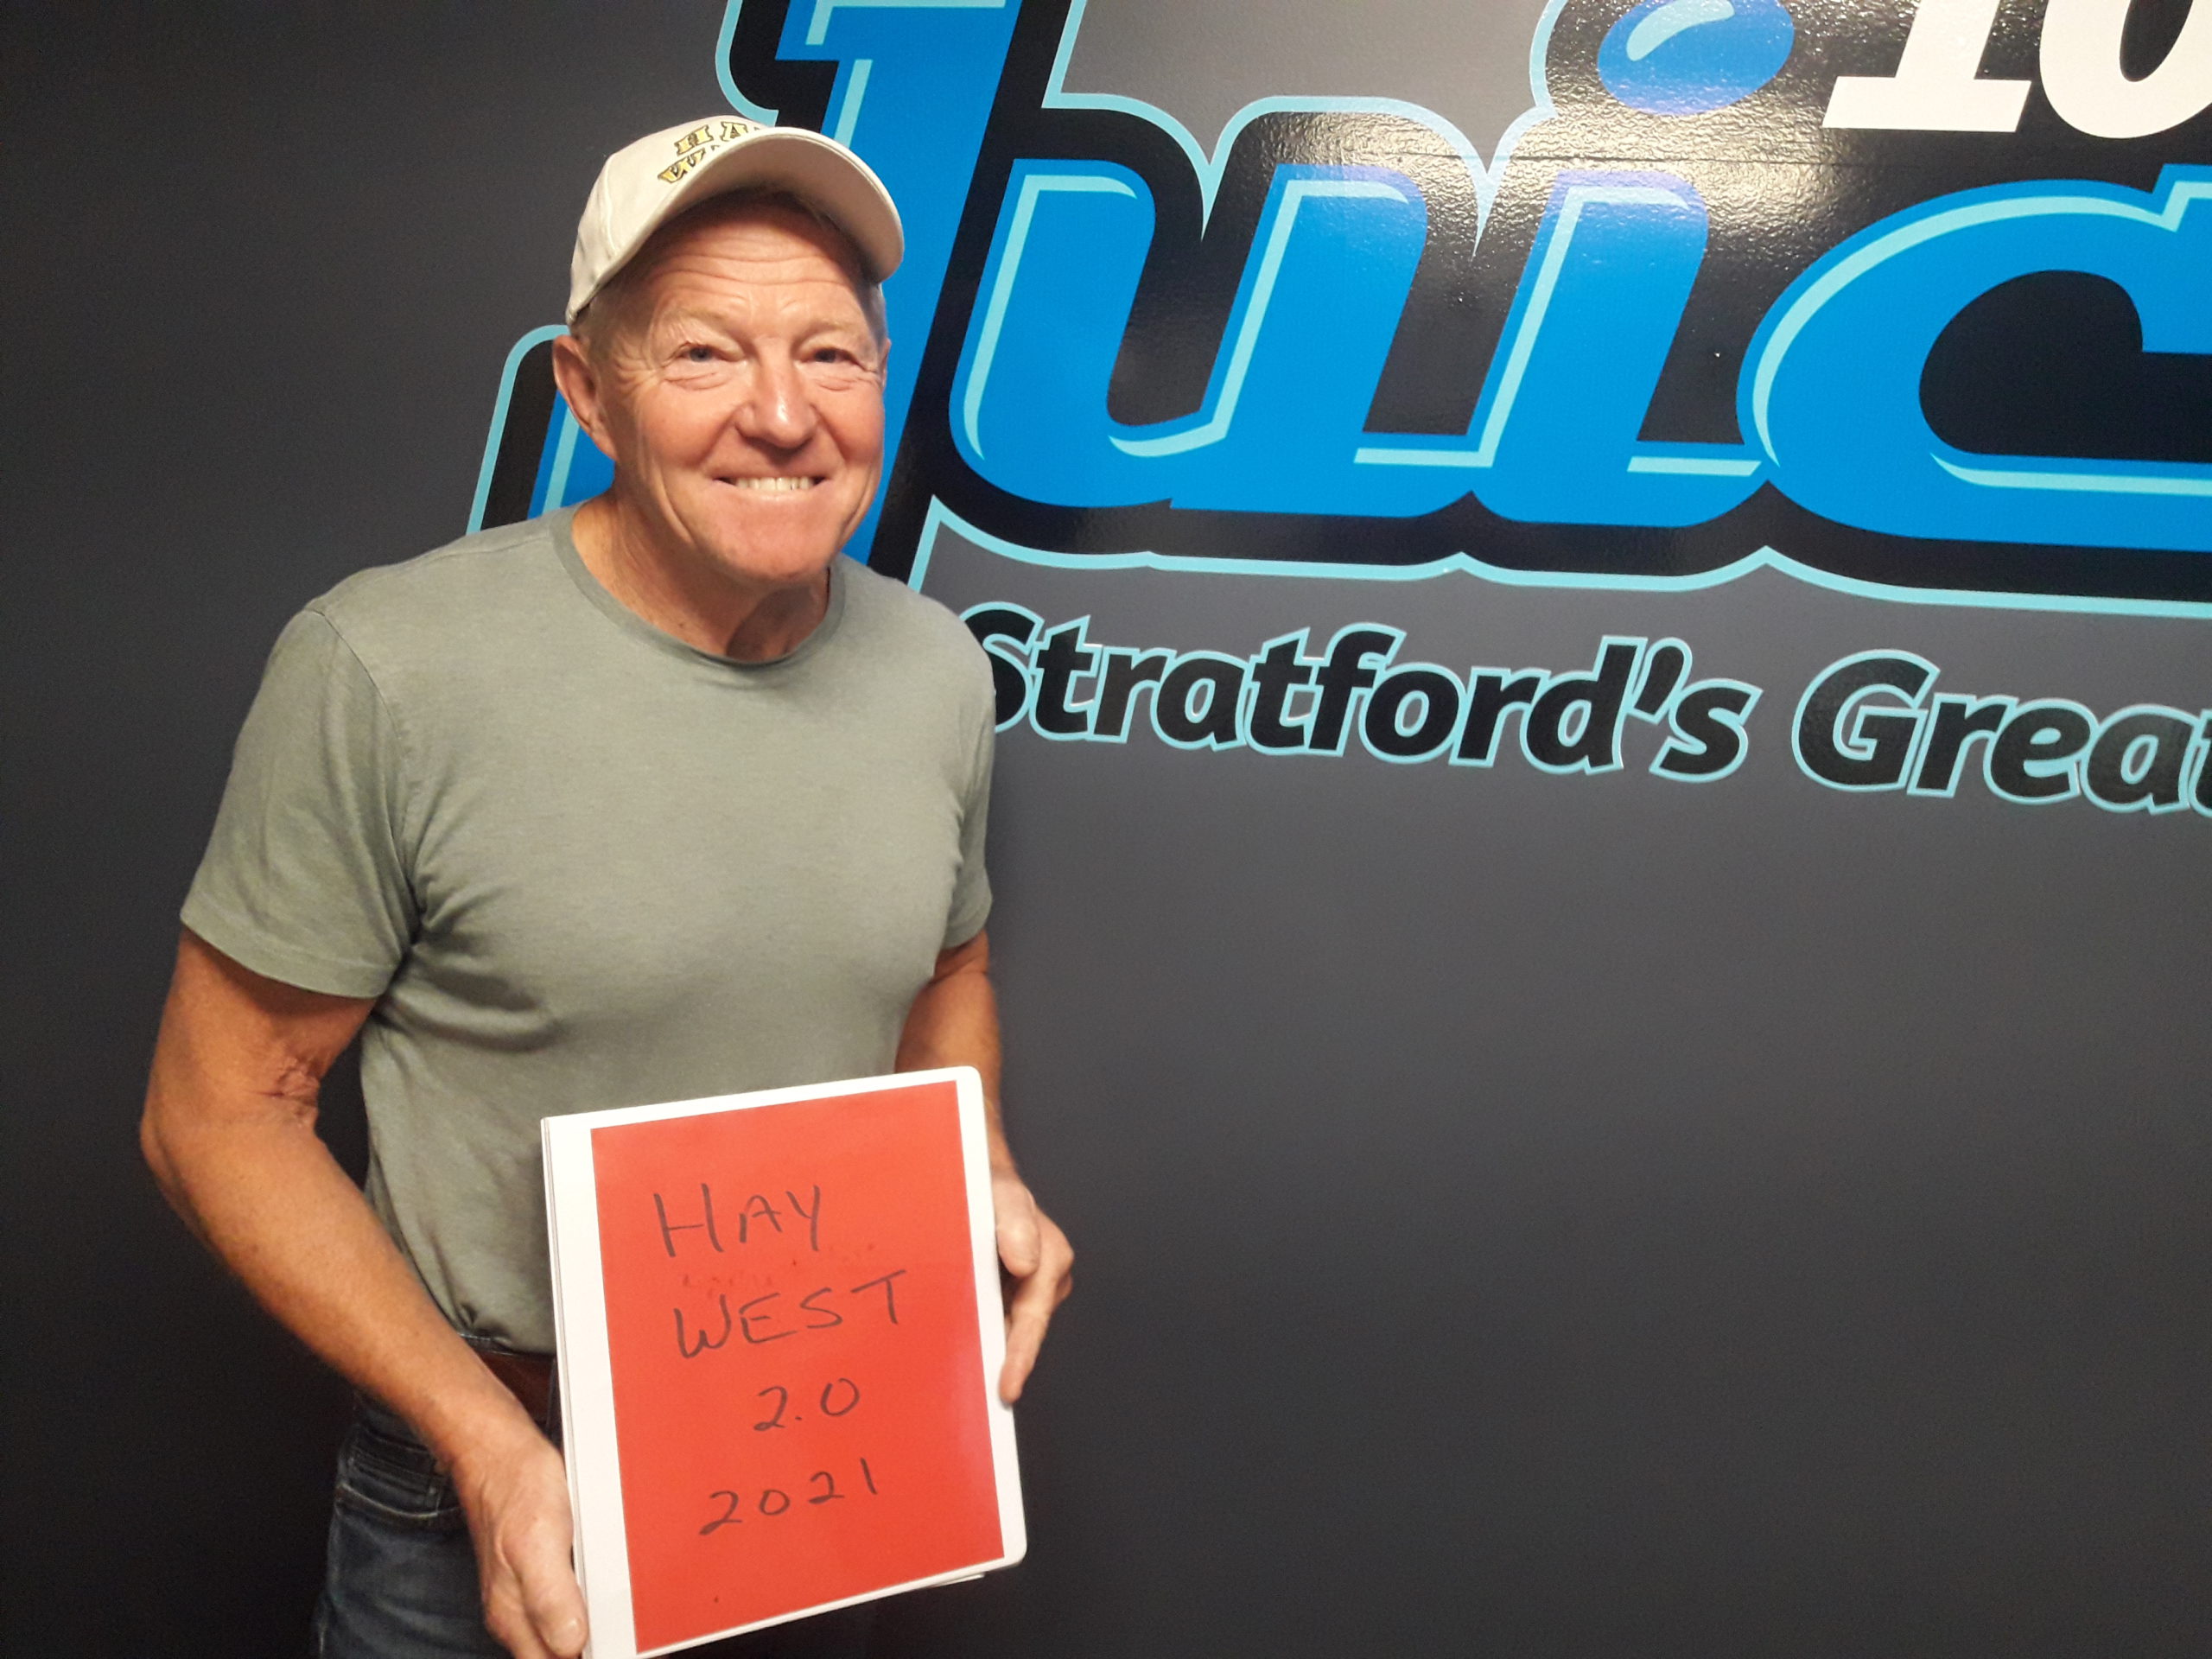 10
Juic
Stratford's Great
HAY
WEST
2.0
2021